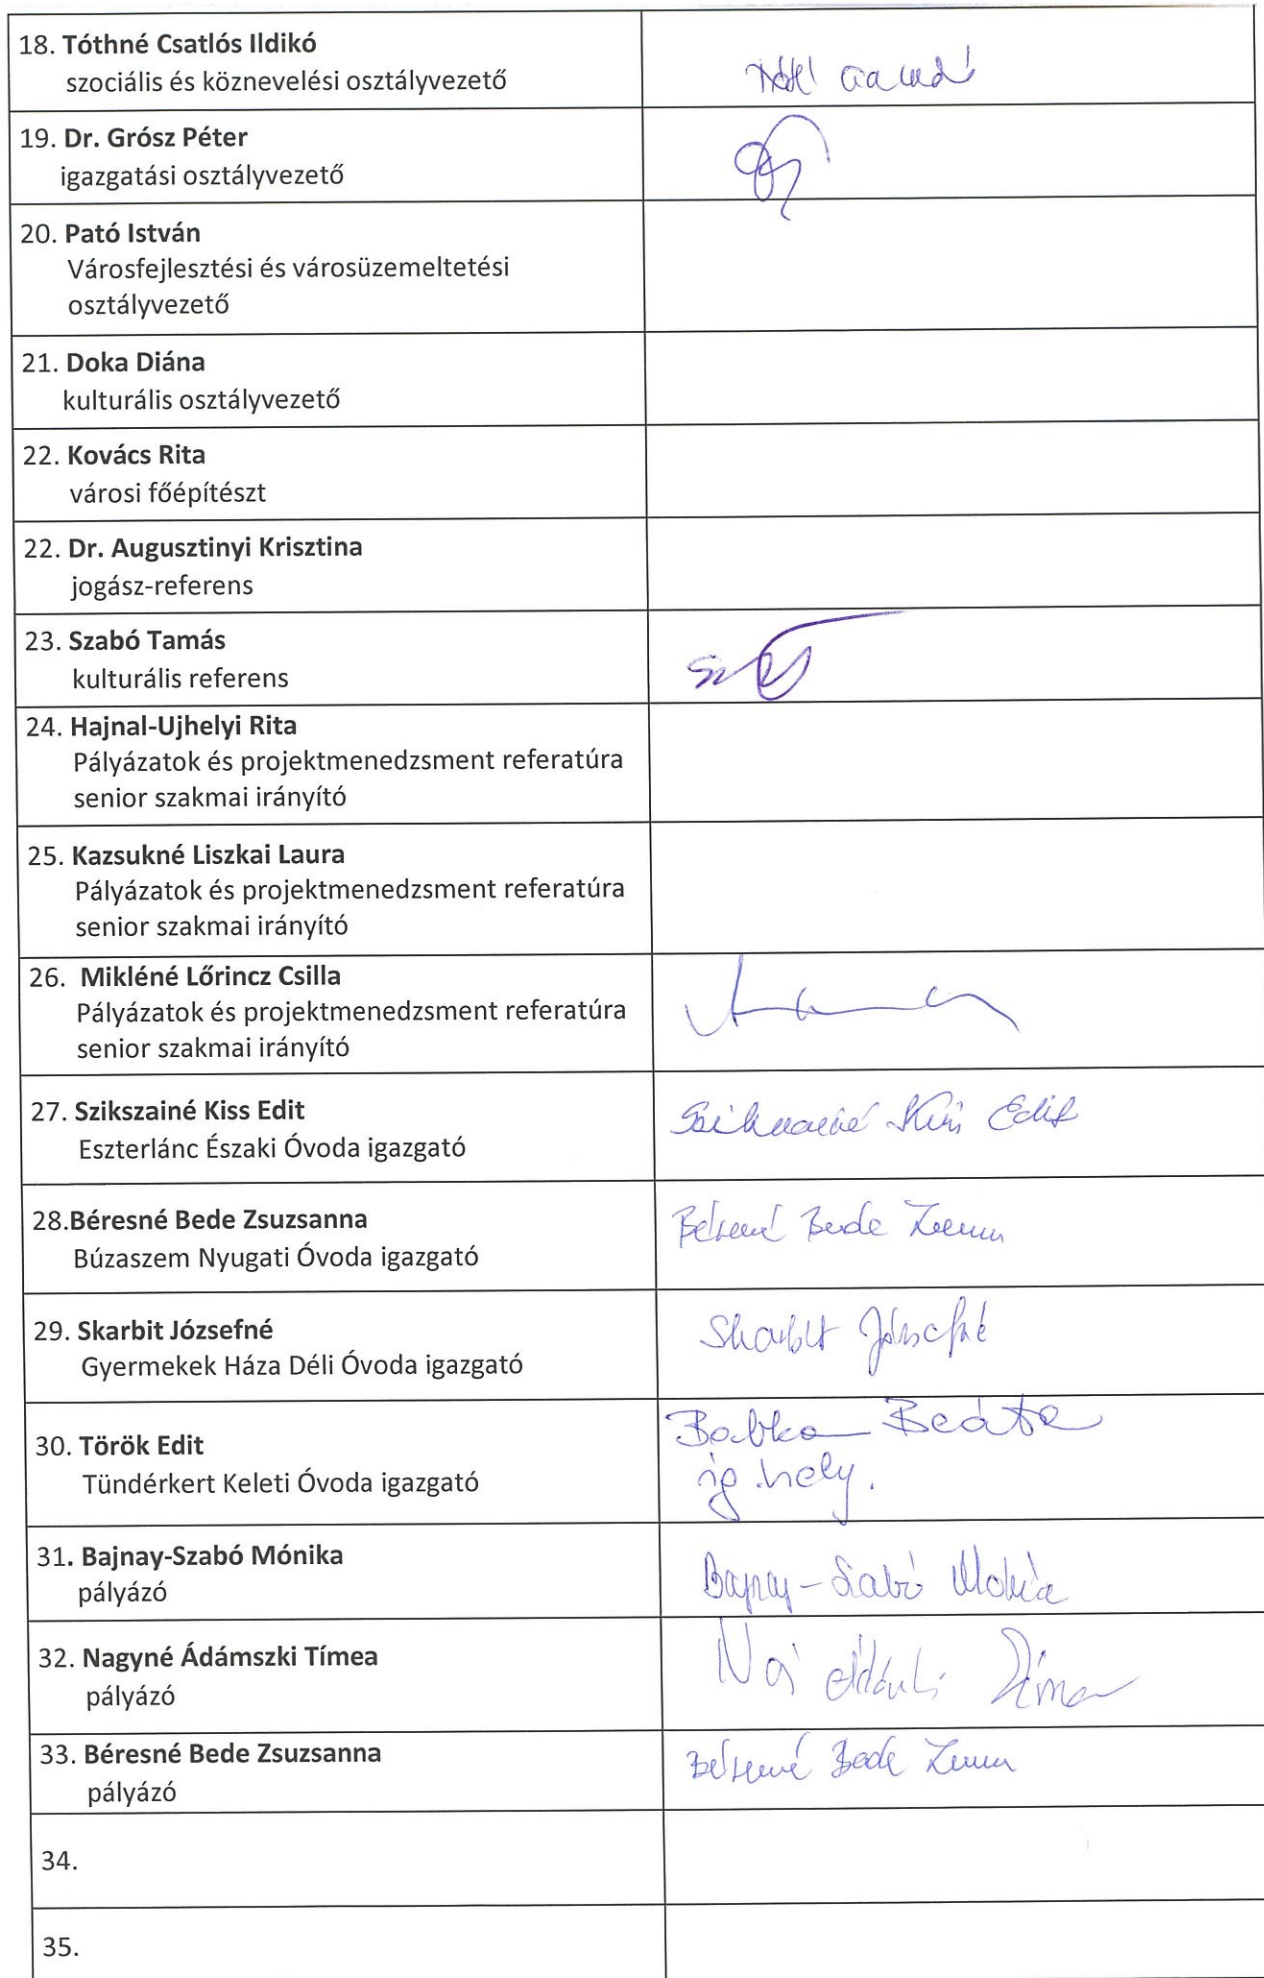 18. Tóthné Csatlós Ildikó
szociális és köznevelési osztályvezető
19. Dr. Grósz Péter
igazgatási osztályvezető
20. Pató István
Városfejlesztési és városüzemeltetési
osztályvezető
21. Doka Diána
kulturális osztályvezető
22. Kovács Rita
városi főépítészt
22. Dr. Augusztinyi Krisztina
jogász-referens
23. Szabó Tamás
kulturális referens
24. Hajnal-Ujhelyi Rita
Pályázatok és projektmenedzsment referatúra
senior szakmai irányító
25. Kazsukné Liszkai Laura
Pályázatok és projektmenedzsment referatúra
senior szakmai irányító
26. Mikléné Lőrincz Csilla
Pályázatok és projektmenedzsment referatúra
senior szakmai irányító
27. Szikszainé Kiss Edit
Eszterlánc Északi Óvoda igazgató
Szikszainé Kiss Edit
28.Béresné Bede Zsuzsanna
Búzaszem Nyugati Óvoda igazgató
Béresné Bede Zsuzsanna
29. Skarbit Józsefné
Gyermekek Háza Déli Óvoda igazgató
Skarbit Józsefné
30. Török Edit
Tündérkert Keleti Óvoda igazgató
Babka Beáta
ig.hely.
31. Bajnay-Szabó Mónika
pályázó
Bajnay-Szabó Mónika
32. Nagyné Ádámszki Tímea
pályázó
Tímea
33. Béresné Bede Zsuzsanna
pályázó
Béresné Bede Zsuzsanna
34.
35.